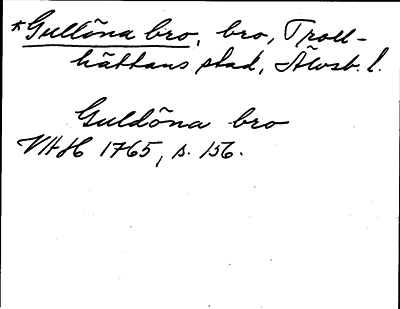 *Gullöna bro, bro, Troll-
hättans stad, Älvsb. l.
Guldöna bro
VAH 1765, s. 156.